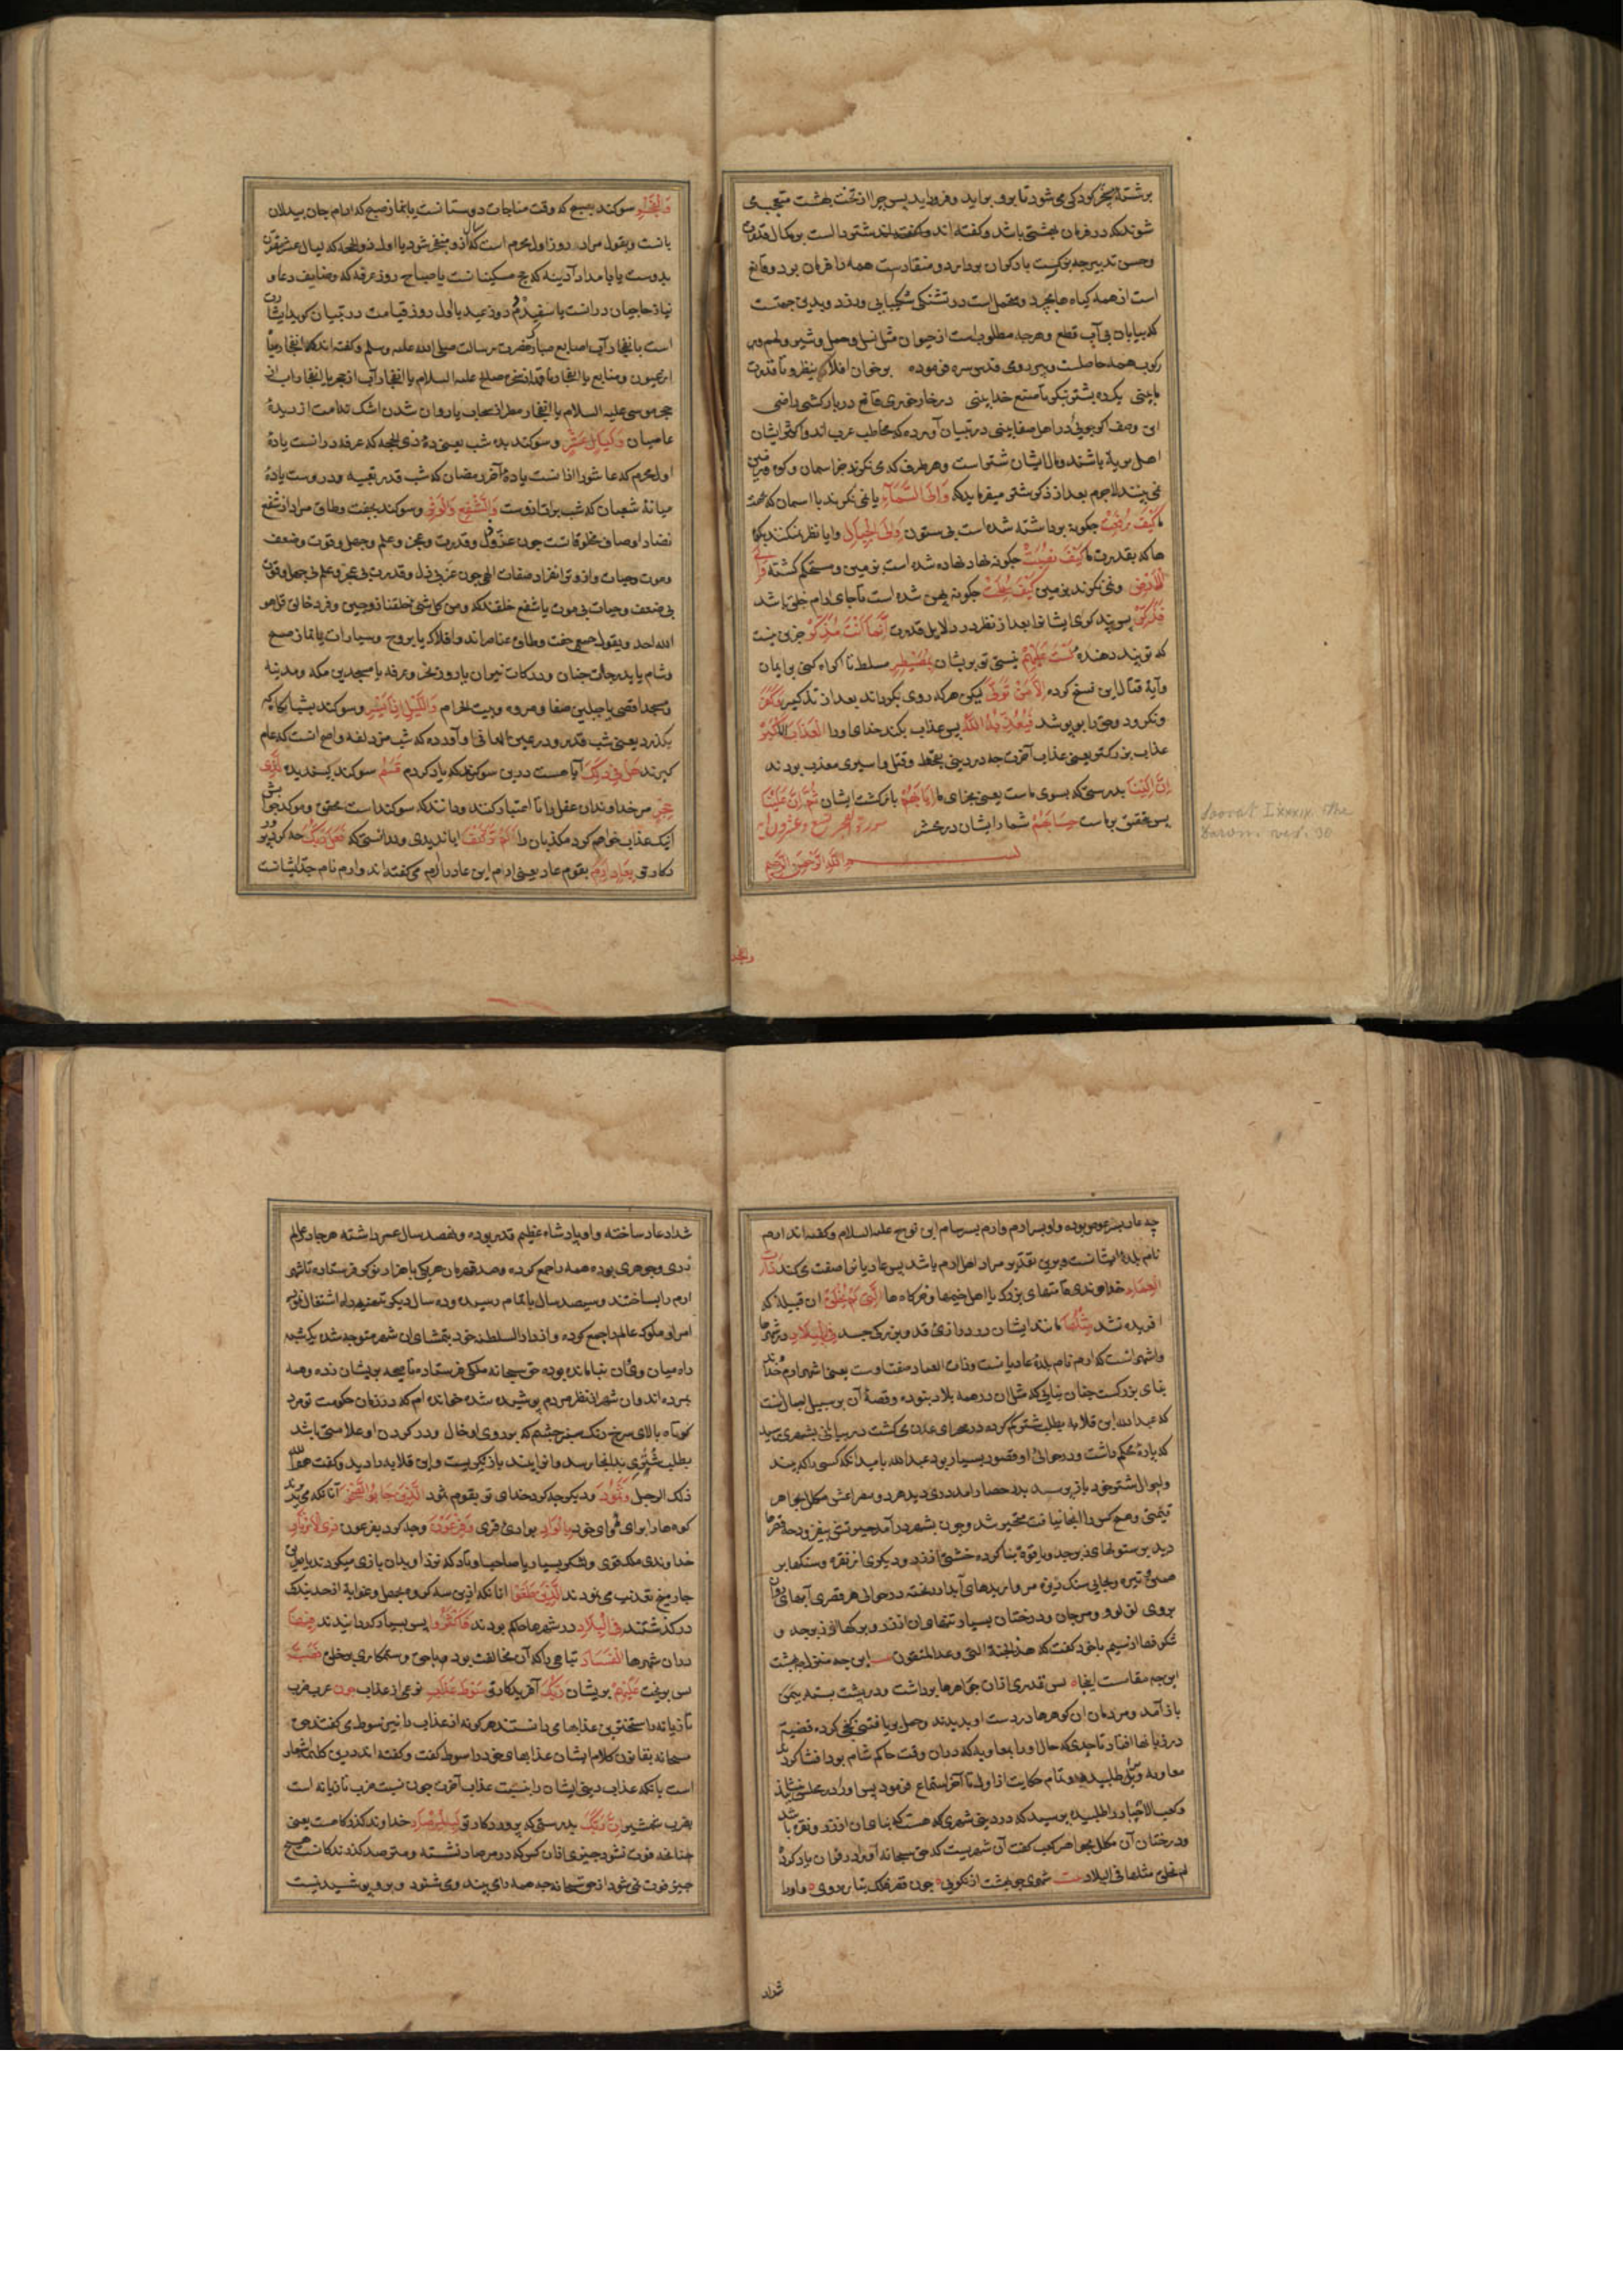 برشتهٔ مسخر کودکی می شود تا برو برآید و فرود آید پس چرا از تخت بهشت متعجب می
شوند که در فرمان بهشتی باشد و گفته اند
و حسن تدبیر چه بزرگست بارگران بردارد و منقادست همه را فرمان برد و قانع
است از همه گیاه ها بچرد و متحمل است در تشنگی شکیبایی ورزد و بدین جهت
که بیابان بی آب قطع و هرچه مطلوبست از حیوان مثل نسل و حمل و شیر و لحم و
رکوب همه حاصلست و پیر رومی قدس سره فرموده برخوان افلا ینظر تا قدرت
ما بینی یکره بشتر بنگر تا صنع خدا بینی در خار خوری قانع در بارکشی راضی
این وصف اگر جویی در اهل صفا بینی در تبیان آورده که مخاطب عرب اند و اکثر ایشان
اهل بریه باشند و مال ایشان شتر است و هر طرف که می نگرند جز آسمان و کوه و زمین
نمی بینند لاجرم بعد از ذکر شتر میفرماید که وَاِلَی السَّمَآءِ یا نمی نگرند باسمان که
کَیْفَ رُفِعَتْ چگونه برداشته شده است بی ستون وَاِلَی الْجِبَالِ و ایا نظر نمیکنند بکوه
ها که بقدرت ما کَیْفَ نُصِبَتْ چگونه نهاد نهاده شده است بزمین و مستحکم گشته وَاِلَی
الْاَرْضِ و نمی نگرند بزمین کَیْفَ سُطِحَتْ چگونه پهن شده است تا جای آرام خلق باشد
فَذَکِّرْ پس پند گوی ایشانرا بعد از نظر در دلایل قدرت اِنَّمَا اَنْتَ مُذَکِّرٌ جزین نیست
که تو پند دهندهٔ لَسْتَ عَلَیْهِمْ نیستی تو بریشان بِمُصَیْطِرٍ مسلط تا اکراه کنی بر ایمان
و آیهٔ قتال این نسخ کرده اِلَّا مَنْ تَوَلّٰی لیکن هرکه روی بگرداند بعد از تذکیر وَکَفَرَ
و نگرود و حق را بپوشد فَیُعَذِّبُهُ اللّٰهُ پس عذاب بکند خدای او را الْعَذَابَ الْاَکْبَرَ
عذاب بزرگتر یعنی عذاب آخرت چه در دنیی بقحط و قتل و اسیری معذب بودند
اِنَّ اِلَیْنَا بدرستی که بسوی ماست یعنی بجزای ما اِیَابَهُمْ بازگشت ایشان ثُمَّ اِنَّ عَلَیْنَا
پس بتحقیق بر ماست حِسَابَهُمْ شمار ایشان در محشر سورة الفجر تسع و عشرون آیه
بسم الله الرحمن الرحیم
Soorat Lxxxix. the
والفجر
وَالْفَجْرِ سوکند بصبح که وقت مناجات دوستانست یا بنماز صبح که آرام جان بیدلان
یانست و بقول مراد روز اول محرم است که سال ازو منفجر شود یا اول ذوالحجه که لیال عشر
بدوست یا بامداد آدینه که حج مسکینانست یا صباح روز عرفه که وظایف دعا و
نیاز حاجیان درانست یا سفیده دم روز عید یا اول روز قیامت در تبیان گوید اشارت
است بانفجار آب از اصابع مبارک حضرت رسالت صلی الله علیه وسلم و گفته اند که انفجار میاه
از عیون و منابع یا انفجار ناقه از صخره صالح علیه السلام یا انفجار آب از حجر یا انفجار آب از
حجر موسی علیه السلام یا انفجار مطر از سحاب یا روان شدن اشک ندامت از دیدهٔ
عاصیان وَلَیَالٍ عَشْرٍ و سوکند بده شب یعنی دههٔ ذی الحجه که عرفه درانست یا دههٔ
اول محرم که عاشورا ازانست یا دههٔ آخر رمضان که شب قدر تعبیه دروست یا دههٔ
میانهٔ شعبان که شب برات ازوست وَالشَّفْعِ وَالْوَتْرِ و سوکند بجفت و طاق مراد از شفع
تضاد اوصاف مخلوقاتست چون عز و ذل و قدرت و عجز و علم و جهل و قوت و ضعف
و موت و حیات و از وتر انفراد صفات الهی چون عز بی ذل و قدرت بی عجز و علم بی جهل و قوت
بی ضعف و حیات بی موت یا شفع خلقند که و من کل شی خلقنا زوجین و فرد خالق قل هو
الله احد و بقول جمعی جفت و طاق عناصر اند و افلاک یا بروج و سیارات یا نماز صبح
و شام یا بدرجات جنان و درکات نیران یا روز نحر و عرفه یا مسجدین مکه و مدینه
و مسجد اقصی یا جبلین صفا و مروه و بیت الحرام وَالَّیْلِ اِذَا یَسْرِ و سوکند بشب آنگاه که
بگذرد یعنی شب قدر و در عین المعانی آورده که شب مزدلفه و اصح آنست که عام
گیرند هَلْ فِیْ ذٰلِکَ آیا هست درین سوکند که یاد کردم قَسَمٌ سوکند پسندیده لِّذِیْ
حِجْرٍ مر خداوندان عقل را تا اعتبار کنند و دانند که سوکنداست محقق و موکد جوابش
آنکه عذاب خواهم کرد مکذبان را اَلَمْ تَرَ کَیْفَ ایا ندیدی و ندانستی که فَعَلَ رَبُّکَ چه کرد پرورد
کار تو بِعَادٍ اِرَمَ بقوم عاد یعنی ارم این عاد را ارم می گفته اند و ارم نام جد ایشانست
چه عاد پسر عوص بوده و او پسر ارم و ارم پسر سام ابن نوح علیه السلام و گفته اند ارم
نام بلدهٔ ایشانست و برین تقدیر مراد اهل ارم باشد پس عادیانرا صفت می کند ذَاتِ
الْعِمَادِ خداوندی قامتهای بزرگ یا اهل خیمها و خرگاه ها الَّتِیْ لَمْ یُخْلَقْ آن قبیله که
آفریده نشد مِثْلُهَا مانند ایشان در درازی قد و بزرگی جسد فِی الْبِلَادِ در شهرها
و اشهر آنست که ارم نام بلدهٔ عادیانست و ذات العماد صفت اوست یعنی شهر ارم خداوند
بنای بزرگست چنان بنایی که مثل آن در همه بلاد نبوده و قصهٔ آن بر سبیل اجمال آنست
که عبدالله ابن قلابه بطلب شتر گم کرده در صحرای عدن می گشت در بیابانی بشهری رسید
که بارهٔ محکم داشت و در حوالی او قصور بسیار بود عبدالله بامید آنکه کسی را که بیند
و احوال شتر خود بازپرسد بدر حصار آمد دری دید هر دو مصراعش مکلل بجواهر
قیمتی و هیچ کس را آنجا نیافت متحیر شد و چون بشهر در آمد حیرتش بیفزود چه قصرها
دید بر ستونهای زبرجد و یاقوت بنا کرده خشتی از زر و دیگری از نقره و سنگها بر
بروی لولو و مرجان و درختان بسیار تنهای آن از زر و برگها از زبرجد و
شکوفها از سیم با خود گفت که هذه الجنة التی وعد المتقون این چه منزل بهشت
این چه مقامست اینجا پس قدری از آن جواهرها برداشت و در پشت بسته بیمن
باز آمد و مردمان آن گوهرها در دست او بدیدند و
در زبانها افتاد تا حدی که حال او را بمعاویه که دران وقت حاکم شام بود افشا کردند
معاویه ویرا طلبید و تمام حکایت از اول تا آخر استماع فرمود پس او را در مجلس
و کعب الاحبار را طلبیده پرسید که در دنیی شهری که هست که بنای آن از زر و نقره باشد
و درختان آن مکلل بجواهر کعب گفت آن شهریست که حق سبحانه آنرا در قرآن یاد کرده
لم یخلق مثلها فی البلاد شهری چو بهشت از نکویی چون قصر فلک بتازه رویی و او را
شداد
شداد عاد ساخته و او پادشاه عظیم قدر بوده و نهصد سال عمر داشته هر جا در عالم
زری و جوهری بوده همه را جمع کرده و صد قهرمان هر یکی با هزار نوکر فرستاده تا شهر
ارم را بساختند و سیصد سال باتمام رسید و ده سال دیگر تجهیز راه اشتغال نموده
امرا و ملوک عالم را جمع کرده و از دار السلطنه خود بتماشای آن شهر متوجه شده یکشبه
راه میان وی و آن بنا مانده بوده حق سبحانه ملکی فرستاده تا صیحه بریشان زده و همه
بمرده اند و آن شهر از نظر مردم پوشیده شده خوانده ام که در زمان حکومت تو مرد
کوتاه بالای سرخ رنگ سبز چشم که بر روی او خال و در گردن او علامتی باشد
بطلب شتری بدانجا رسد و آنرا بیند بازنگریست و ابن قلابه را دید و گفت هو والله
ذلک الرجل وَثَمُوْدَ و دیگر چه کرد خدای تو بقوم ثمود الَّذِیْنَ جَابُوا الصَّخْرَ آنانکه می بریدند
کوه ها را برای مأوای خود بِالْوَادِ بوادی قری وَفِرْعَوْنَ و چه کرد بفرعون ذِی الْاَوْتَادِ
خداوندی ملک قوی و لشکر بسیار یا صاحب اوتاد که نزد او بدان بازی میکردند یا مردم را
چار میخ تعذیب می نمودند الَّذِیْنَ طَغَوْا آنانکه ازین سه گروه بجهل و غوایة از حد بندگی
درگذشتند فِی الْبِلَادِ در شهرها که حاکم بودند فَاَکْثَرُوْا پس بسیار کردانیدند فِیْهَا
دران شهرها الْفَسَادَ تباهی را که آن مخالفت بود و ستمکاری بر خلق فَصَبَّ
پس بریخت عَلَیْهِمْ بریشان رَبُّکَ آفریدکار تو سَوْطَ عَذَابٍ نوعی از عذاب چون عرب ضرب
تازیانه را سخت ترین عذابها می دانستند هر گونه از عذاب را نیز سوط می گفتند حق
سبحانه بقانون کلام ایشان عذابهای خود را سوط گفت و گفته اند درین کلمه اشعار
است بآنکه عذاب دنیی ایشان را نسبت عذاب آخرت چون نسبت ضرب تازیانه است
بضرب شمشیر اِنَّ رَبَّکَ بدرستی که پروردکار تو لَبِالْمِرْصَادِ خداوند گذرگاهست یعنی
چنانچه فوت نشود چیزی از آن کس که در مرصاد نشسته و مترصد گذرندگانست هیچ
چیز فوت نمی شود از حق سبحانه چه همه را می بیند و می شنود و برو پوشیده نیست